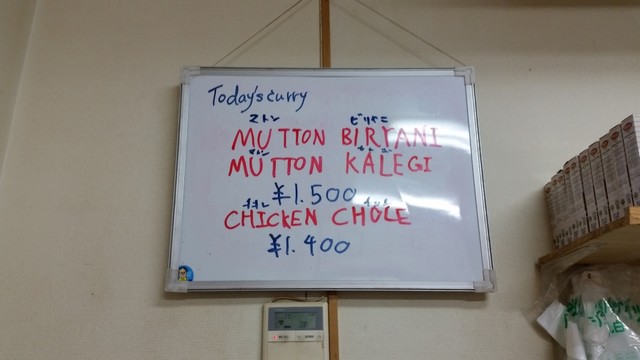 Today's curry
マトン ビリヤニ
MUTTON BIRYANI
マトン
MUTTON KALEGI
¥1.500
CHICKEN CHOLE
¥1.400